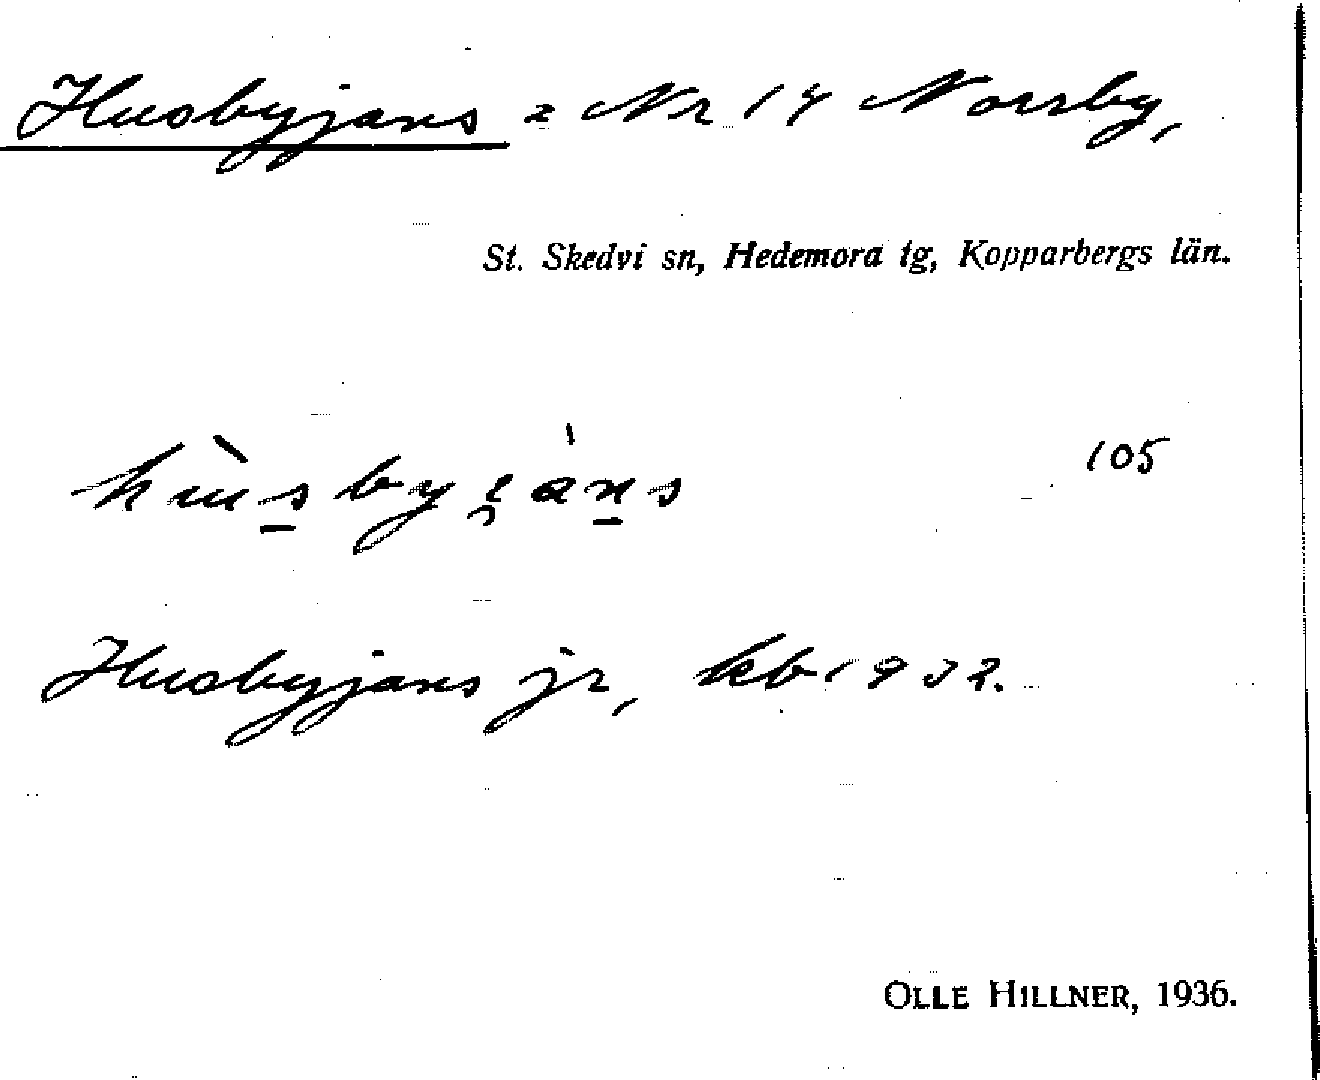 Husbyjans = Nr 14 Norrby,
St. Skedvi sn, Hedemora tg, Kopparbergs län.
105
Husbyjans jr, kb 1932.
OLLE HILLNER, 1936.